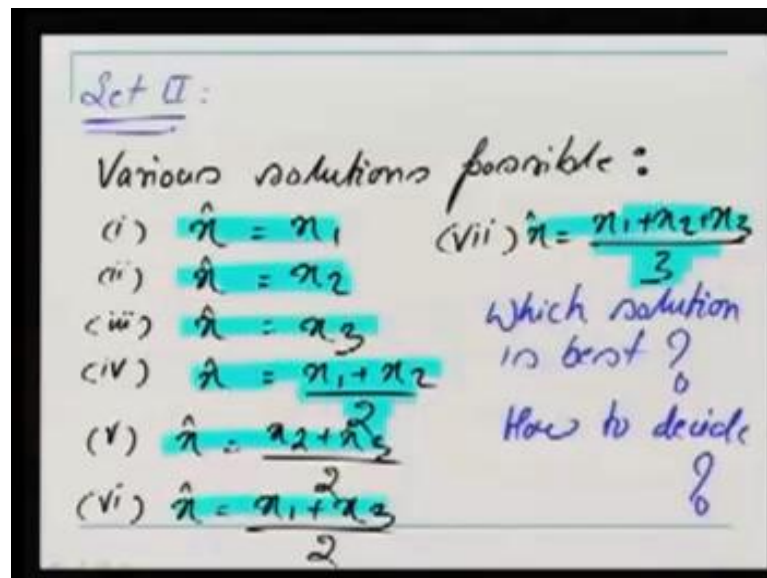 Set II:
Various solutions possible:
(i) x̂ = x₁
(ii) x̂ = x₂
(iii) x̂ = x₃
(iv) x̂ = x₁+x₂/2
(v) x̂ = x₂+x₃/2
(vi) x̂ = x₁+x₃/2
(vii) x̂ = x₁+x₂+x₃/3
Which solution
is best?
How to decide
?